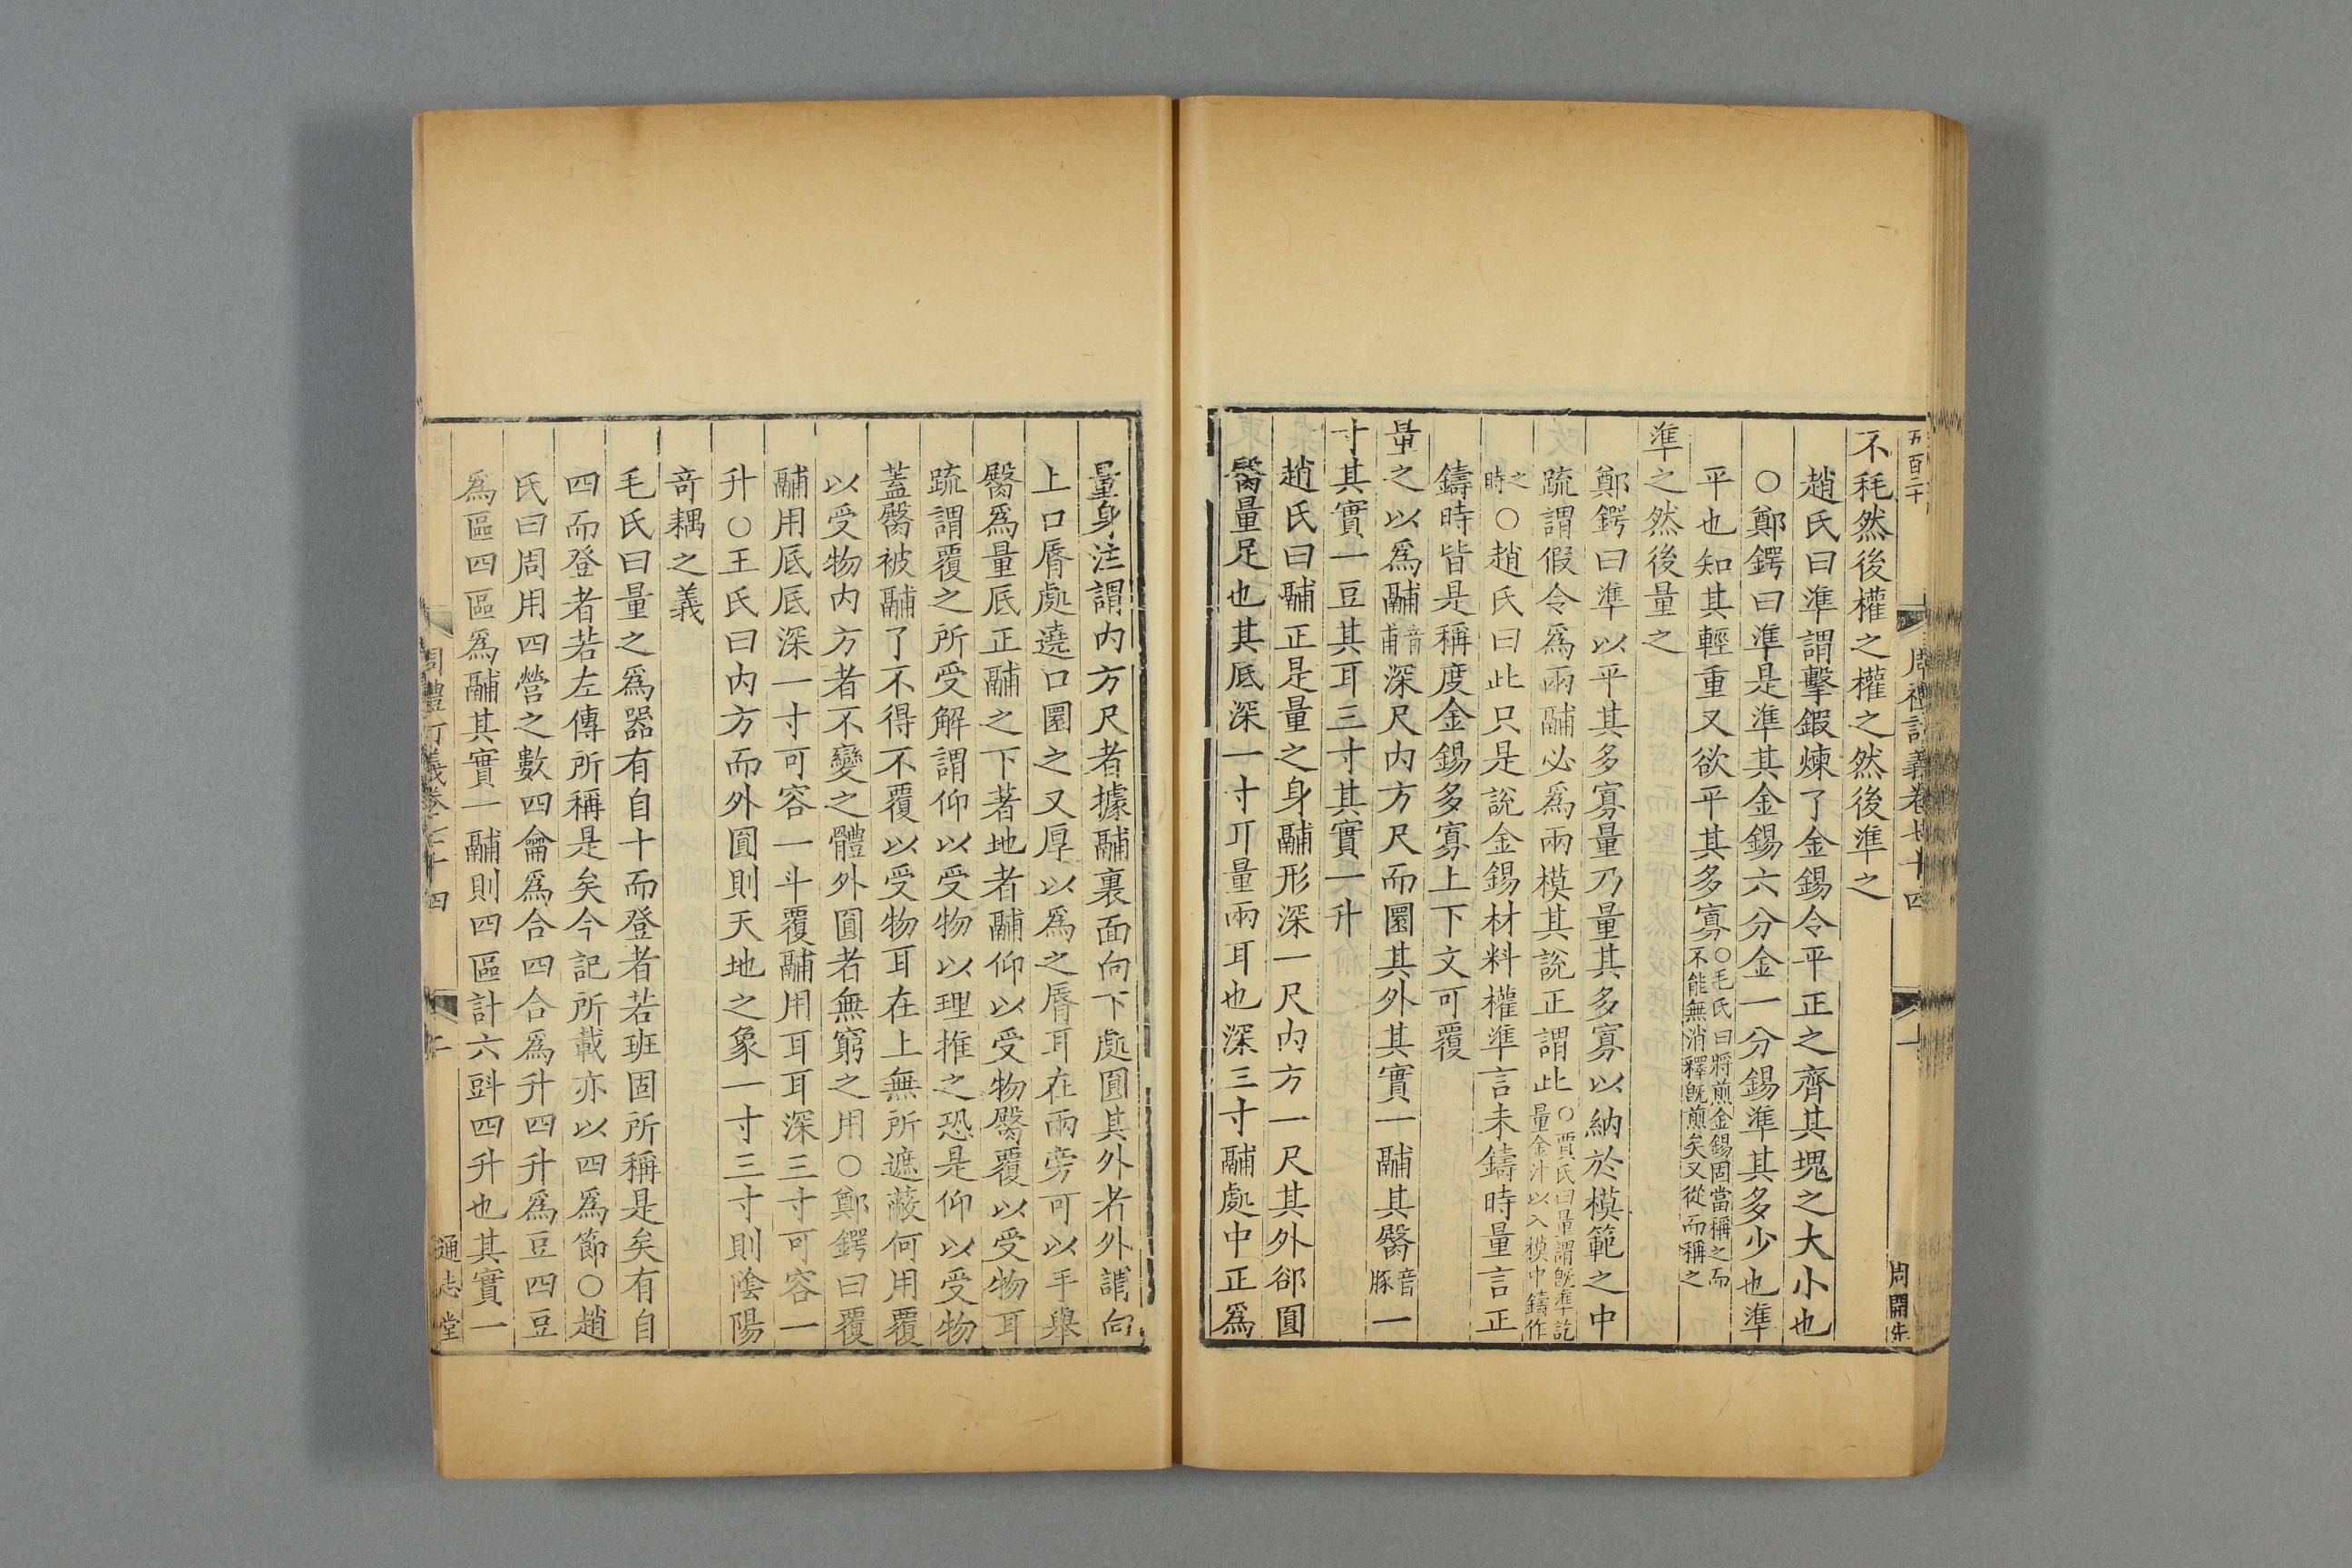 五百二十
周禮訂義卷七十四
一
周開朱
不秏然後權之權之然後準之
趙氏曰準謂擊鍜煉了金錫令平正之齊其塊之大小也
○鄭鍔曰準是準其金錫六分金一分錫準其多少也準
平也知其輕重又欲平其多寡○毛氏曰將煎金錫固當稱之而不能無消釋旣煎矣又從而稱之
準之然後量之
鄭鍔曰準以平其多寡量乃量其多寡以納於模範之中
疏謂假令爲兩鬴必爲兩模其說正謂此○賈氏曰量謂旣準訖量金汁以入模中鑄作
之時○趙氏曰此只是說金錫材料權準言未鑄時量言正
鑄時皆是稱度金錫多寡上下文可覆
量之以爲鬴音甫深尺內方尺而圜其外其實一鬴其臋音豚一
寸其實一豆其耳三寸其實一升
趙氏曰鬴正是量之身鬴形深一尺內方一尺其外郤圓
臋量足也其底深一寸耳量兩耳也深三寸鬴處中正爲
量身注謂內方尺者據鬴裏面向下處圓其外者外謂向
上口脣處遶口圜之又厚以爲之脣耳在兩旁可以手舉
臋爲量底正鬴之下著地者鬴仰以受物臋覆以受物耳
疏謂覆之所受解謂仰以受物以理推之恐是仰以受物
蓋臋被鬴了不得不覆以受物耳在上無所遮蔽何用覆
以受物內方者不變之體外圓者無窮之用○鄭鍔曰覆
鬴用底底深一寸可容一斗覆鬴用耳耳深三寸可容一
升○王氏曰內方而外圓則天地之象一寸三寸則陰陽
奇耦之義
毛氏曰量之爲器有自十而登者若班固所稱是矣有自
四而登者若左傳所稱是矣今記所載亦以四爲節○趙
氏曰周用四營之數四龠爲合四合爲升四升爲豆四豆
爲區四區爲鬴其實一鬴則四區計六㪷四升也其實一
周禮訂義卷七十四
二
通志堂